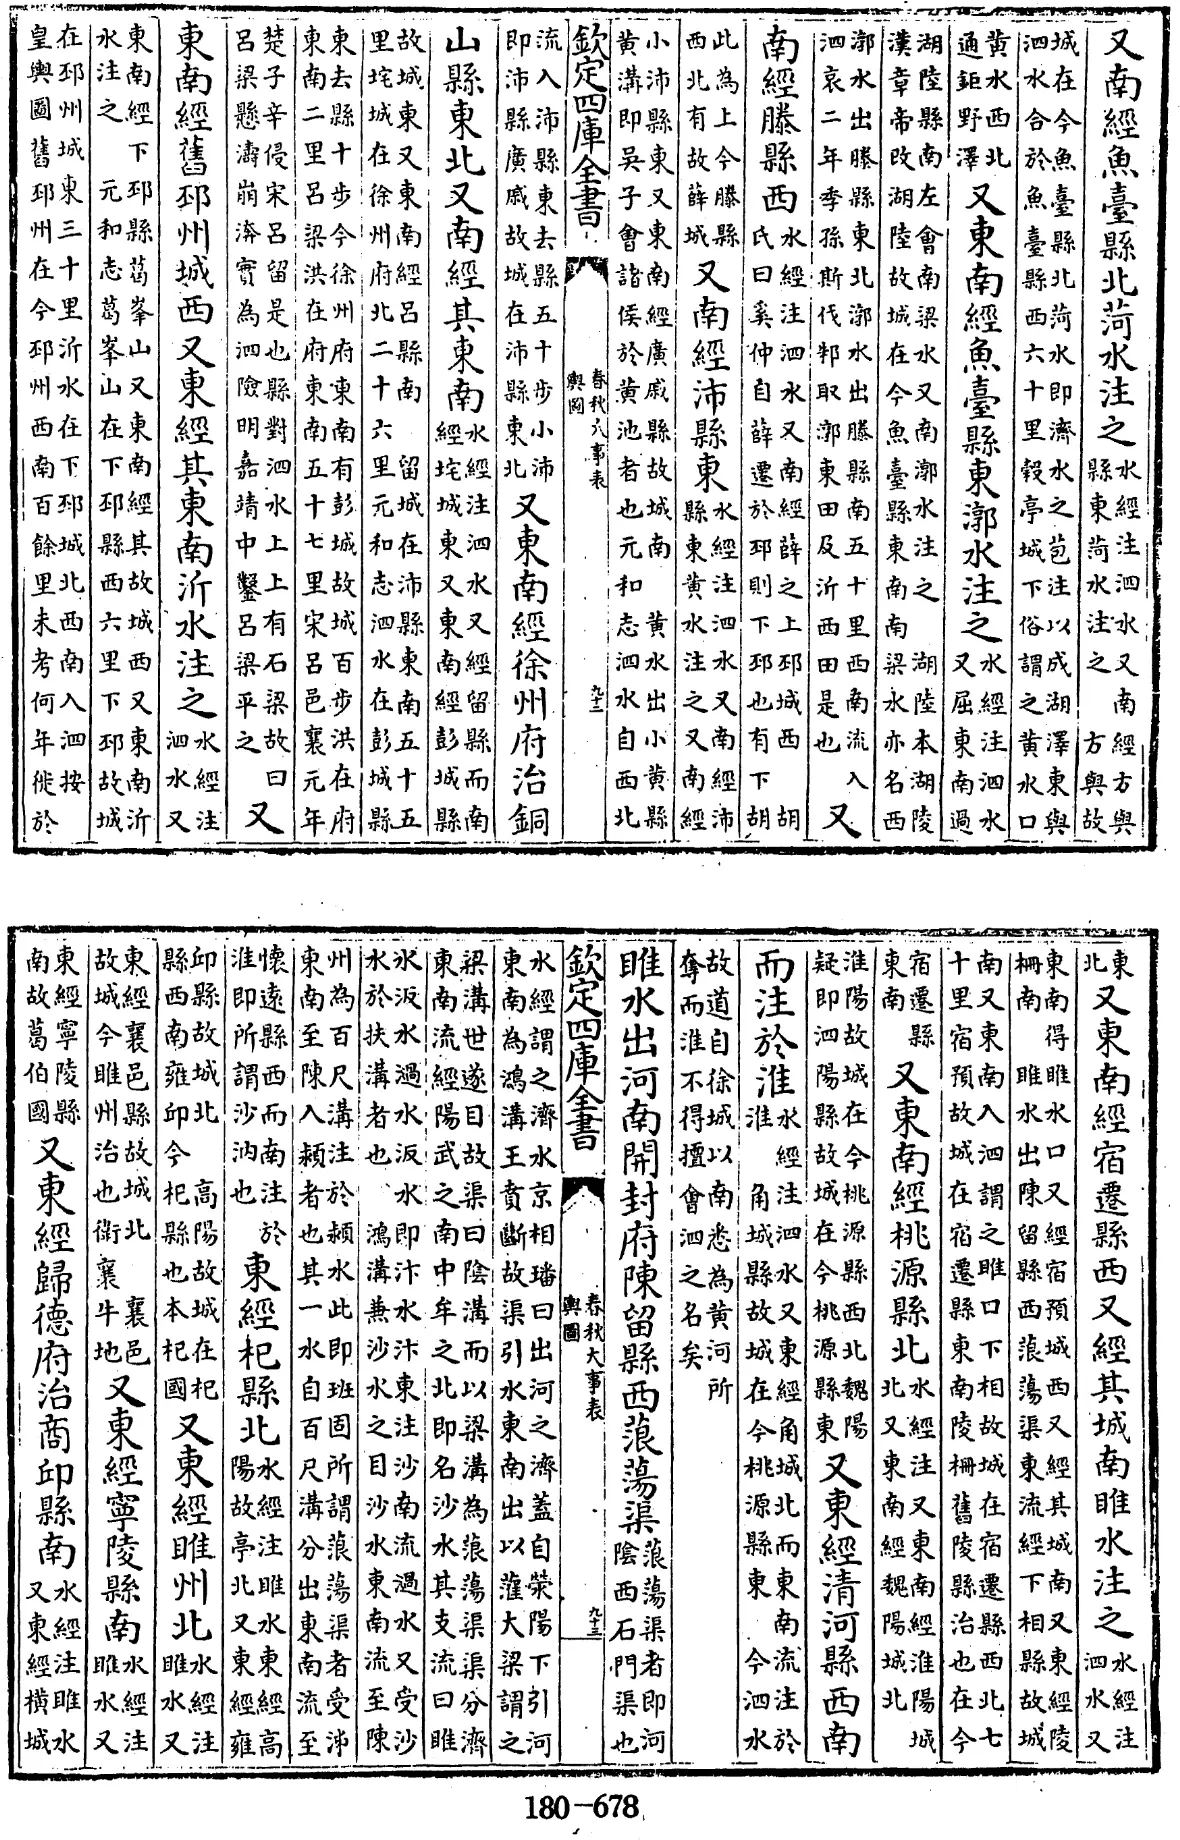 又南經魚臺縣北菏水注之水經注泗水又南經方與縣東菏水注之 方與故
城在今魚臺縣北菏水即濟水之苞注以成湖澤東與泗水合於魚臺縣西六十里穀亭城下俗謂之黄水口
黄水西北通鉅野澤又東南經魚臺縣東漷水注之水經注泗水又屈東南過
湖陸縣南左會南梁水又南漷水注之 湖陸本湖陵漢章帝改湖陸故城在今魚臺縣東南南梁水亦名西
漷水出滕縣東北漷水出滕縣南五十里西南流入泗哀二年季孫斯伐邾取漷東田及沂西田是也又
南經滕縣西水經注泗水又南經薛之上邳城西 胡氏曰奚仲自薛遷於邳則下邳也有下胡
此為上今滕縣西北有故薛城又南經沛縣東水經注泗水又南經沛縣東黄水注之又南經
小沛縣東又東南經廣戚縣故城南 黄水出小黄縣黄溝即吳子會諸侯於黄池者也元和志泗水自西北
欽定四庫全書 春秋大事表 輿圖 九十二
流入沛縣東去縣五十步小沛即沛縣廣戚故城在沛縣東北又東南經徐州府治銅
山縣東北又南經其東南水經注泗水又經留縣而南經垞城東又東南經彭城縣
故城東又東南經呂縣南 留城在沛縣東南五十五里垞城在徐州府北二十六里元和志泗水在彭城縣
東去縣十步今徐州府東南有彭城故城百步洪在府東南二里呂梁洪在府東南五十七里宋呂邑襄元年
楚子辛侵宋呂留是也縣對泗水上上有石梁故曰呂梁懸濤崩渀實為泗險明嘉靖中鑿呂梁平之又
東南經舊邳州城西又東經其東南沂水注之水經注泗水又
東南經下邳縣葛峯山又東南經其故城西又東南沂水注之 元和志葛嶧山在下邳縣西六里下邳故城
在邳州城東三十里沂水在下邳城北西南入泗按皇輿圖舊邳州在今邳州西南百餘里未考何年徙於
東北又東南經宿遷縣西又經其城南睢水注之水經注泗水又
東南得睢水口又經宿預城西又經其城南又東經陵柵南睢水出陳留縣西蒗蕩渠東流經下相縣故城
南又東南入泗謂之睢口下相故城在宿遷縣西北七十里宿預故城在宿遷縣東南陵柵舊陵縣治也在今
宿遷縣東南又東南經桃源縣北水經注又東南經淮陽城北又東南經魏陽城北
淮陽故城在今桃源縣西北魏陽疑即泗陽縣故城在今桃源縣東又東經清河縣西南
而注於淮水經注泗水又東經角城北而東南流注於淮 角城縣故城在今桃源縣東 今泗水
故道自徐城以南悉為黄河所奪而淮不得擅會泗之名矣
睢水出河南開封府陳留縣西蒗蕩渠蒗蕩渠者即河陰西石門渠也
欽定四庫全書 春秋大事表 輿圖 九十三
水經謂之濟水京相璠曰出河之濟蓋自滎陽下引河東南為鴻溝王賁斷故渠引水東南出以灌大梁謂之
梁溝世遂目故渠曰陰溝而以梁溝為蒗蕩渠渠分濟東南流經陽武之南中牟之北即名沙水其支流曰睢
水汳水過水汳水即汴水汴東注沙南流過水又受沙水於扶溝者也 鴻溝兼沙水之目沙水東南流至陳
州為百尺溝注於潁水此即班固所謂蒗蕩渠者受泲東南至陳入潁者也其一水自百尺溝分出東南流至
懷遠縣西而南注於淮即所謂沙汭也東經杞縣北水經注睢水東經高陽故亭北又東經雍
邱縣故城北 高陽故城在杞縣西南雍邱今杞縣也本杞國又東經睢州北水經注睢水又
東經襄邑縣故城北 襄邑故城今睢州治也衛襄牛地又東經寧陵縣南水經注睢水又
東經寧陵縣南故葛伯國又東經歸德府治商邱縣南水經注睢水又東經橫城
180-678